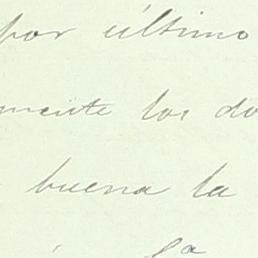 por último
mente los do
buena la